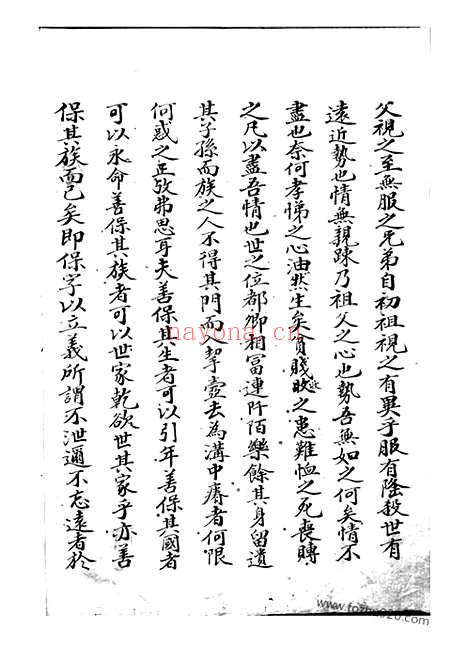 父視之至無服之兄弟自初祖視之有異乎服有隆殺世有
遠近勢也情無親踈乃祖父之心也勢吾無如之何矣情不
盡也奈何孝悌之心油然生矣貧賤收之患難恤之死喪賻
之凡以盡吾情也世之位都卿相冨連阡陌樂餘其身留遺
其子孫而族之人不得其門而入挈壺去為溝中瘠者何限
何或之正攷弗思耳夫善保其生者可以引年善保其國者
可以永命善保其族者可以世家乾欲世其家乎亦善
保其族而已矣即保字以立義所謂不泄邇不忘遠者於
nayona.cn
www.fozhu920.com